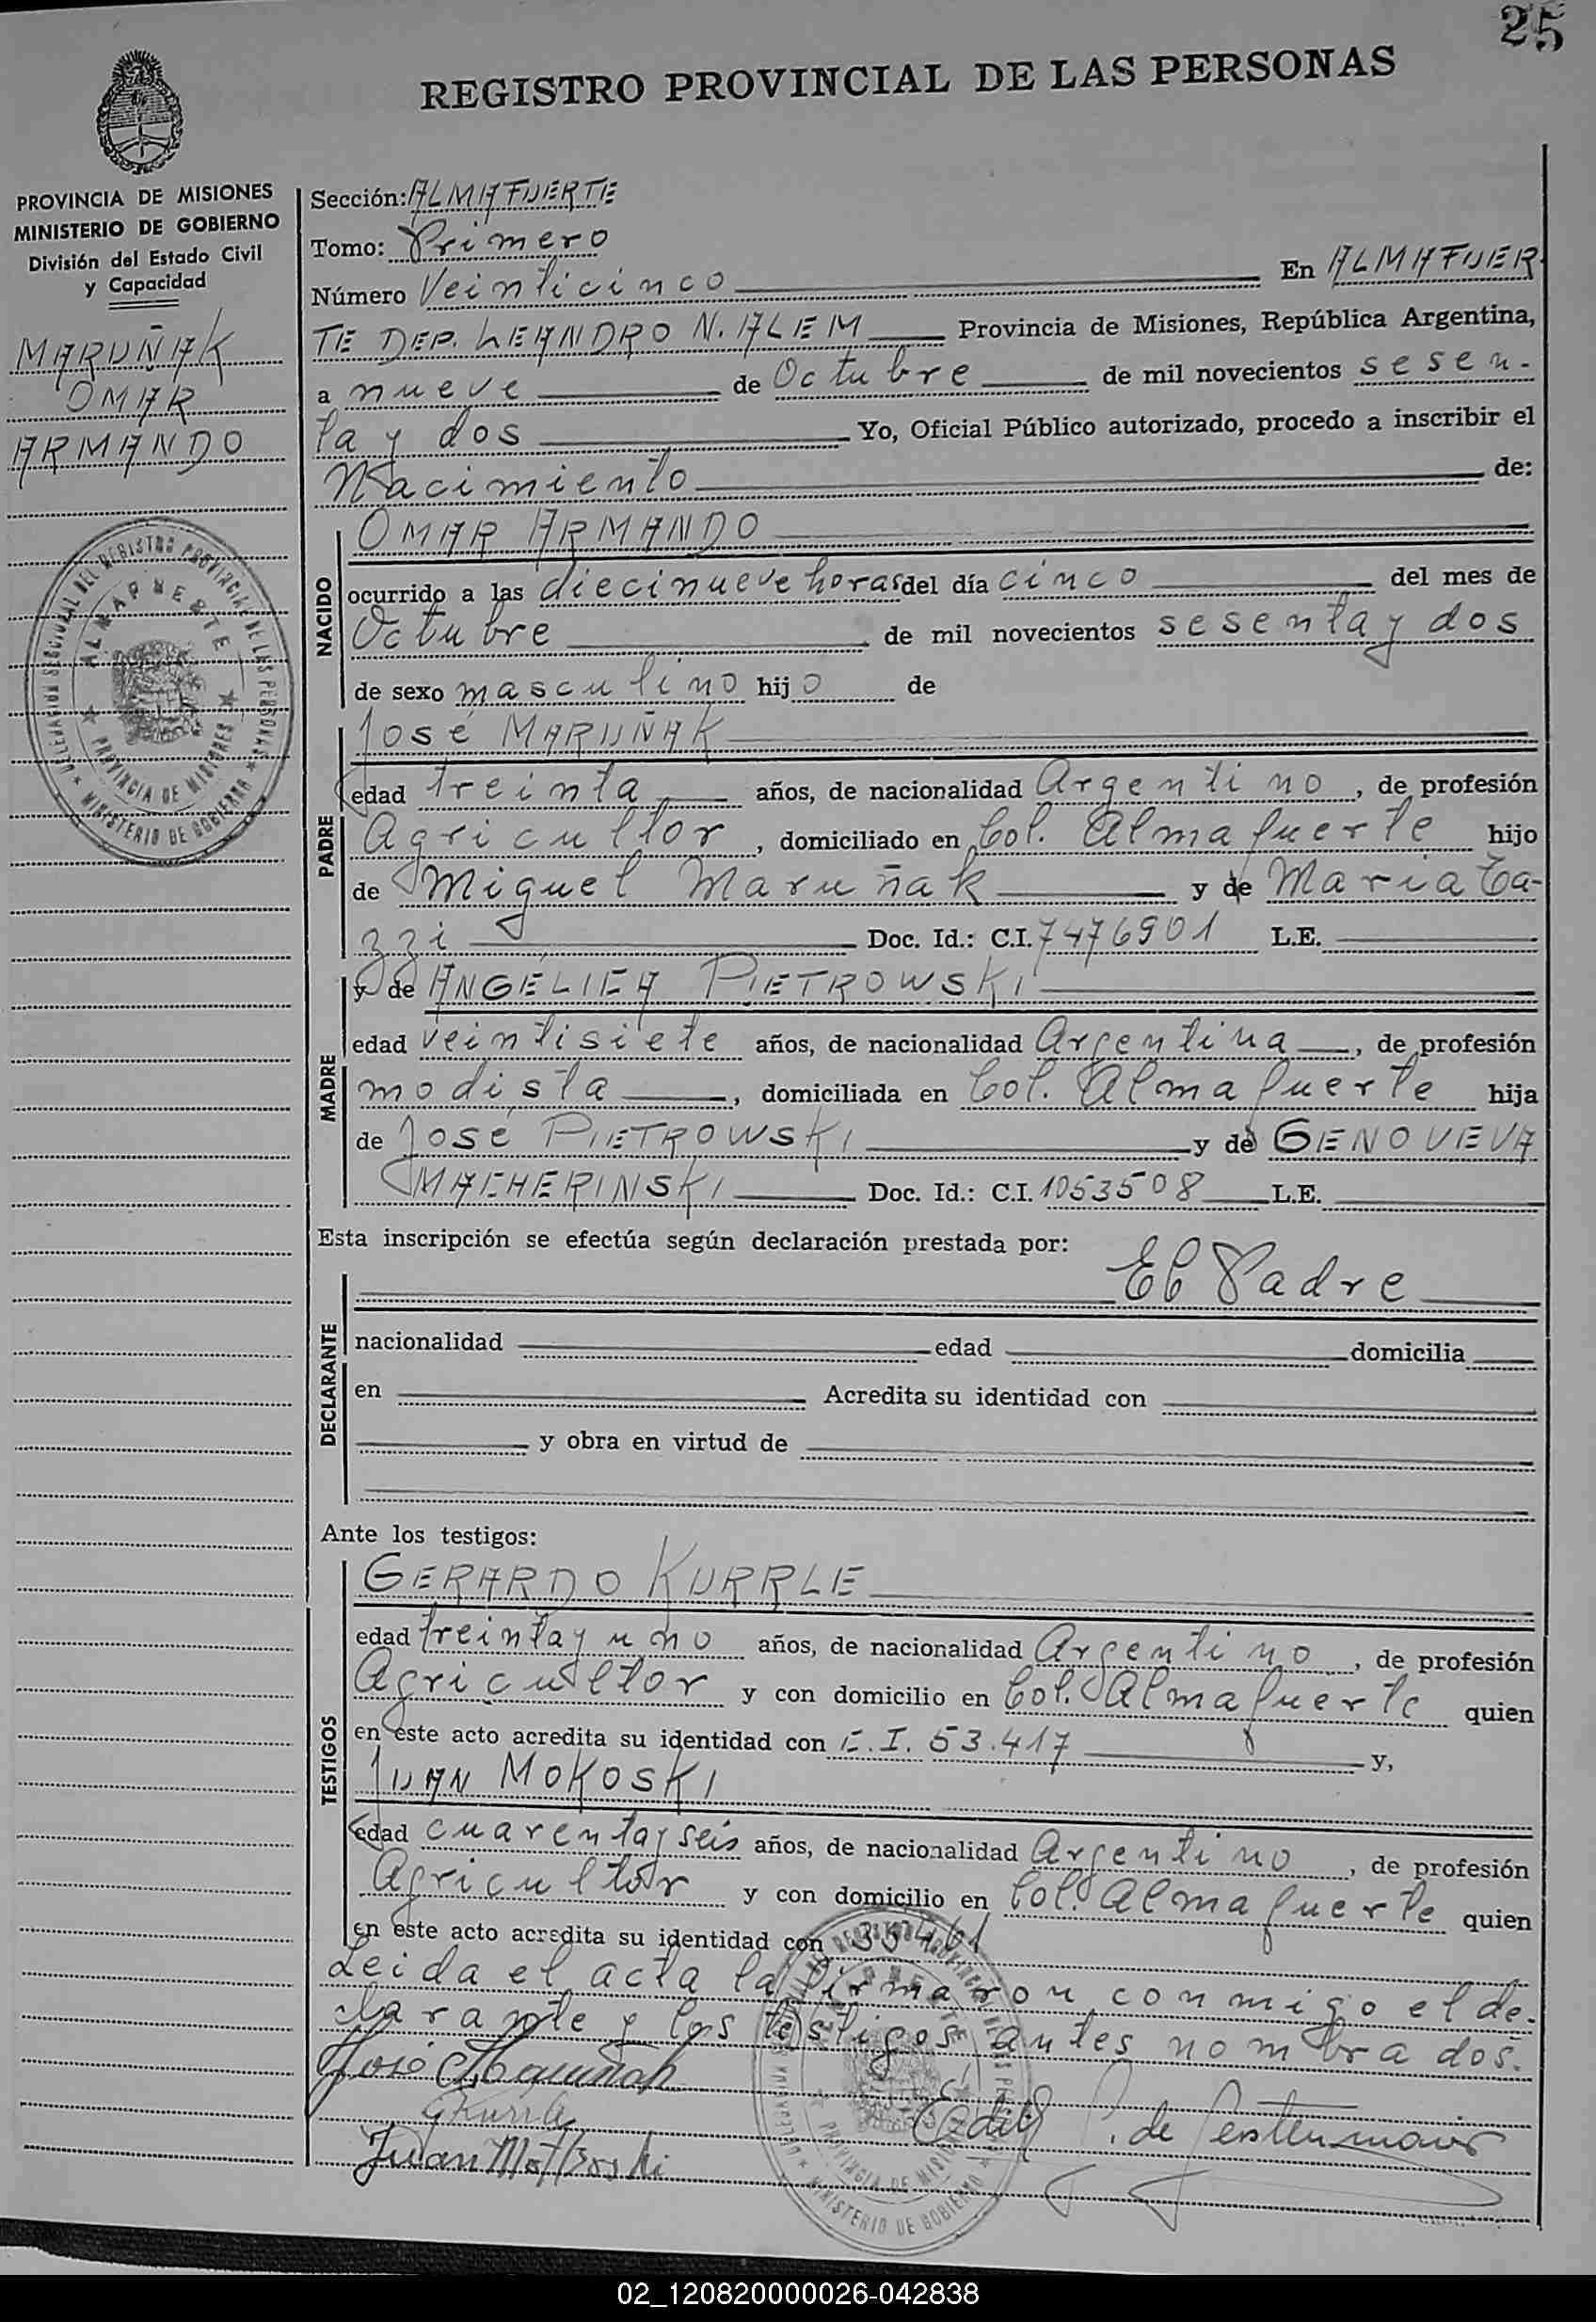 25
REGISTRO PROVINCIAL DE LAS PERSONAS
PROVINCIA DE MISIONES
MINISTERIO DE GOBIERNO
División del Estado Civil
y Capacidad
MARUÑAK
OMAR
ARMANDO
Sección: ALMAFUERTE
Tomo: Primero
Número Veinticinco En ALMAFUER-
TE DEP. LEANDRO N. ALEM Provincia de Misiones, República Argentina,
a nueve de Octubre de mil novecientos sesen-
ta y dos Yo, Oficial Público autorizado, procedo a inscribir el
Nacimiento de:
NACIDO
OMAR ARMANDO
ocurrido a las diecinueve horas del día cinco del mes de
Octubre de mil novecientos sesenta y dos
de sexo masculino hijo de
PADRE
José MARUÑAK
edad treinta años, de nacionalidad Argentino, de profesión
Agricultor, domiciliado en Col. Almafuerte hijo
de Miguel Maruñak y de Maria Ca-
zzi Doc. Id.: C.I. 7476901 L.E.
MADRE
y de ANGELICA PIETROWSKI
edad veintisiete años, de nacionalidad Argentina, de profesión
modista, domiciliada en Col. Almafuerte hija
de José PIETROWSKI y de GENOVEVA
MACHERINSKI Doc. Id.: C.I. 1053508 L.E.
Esta inscripción se efectúa según declaración prestada por:
El Padre
DECLARANTE
nacionalidad edad domicilia
en Acredita su identidad con
y obra en virtud de
Ante los testigos:
TESTIGOS
GERARDO KURRLE
edad treinta y uno años, de nacionalidad Argentino, de profesión
Agricultor y con domicilio en Col. Almafuerte quien
en este acto acredita su identidad con C.I. 53.417 y,
JUAN MOKOSKI
edad cuarenta y seis años, de nacionalidad Argentino, de profesión
Agricultor y con domicilio en Col. Almafuerte quien
en este acto acredita su identidad con
Leida el acta la firmaron conmigo el de-
clarante y los testigos antes nombrados.
José Maruñak
GKurrle
Juan
DELEGACIÓN SECCIONAL DEL REGISTRO PROVINCIAL DE LAS PERSONAS
ALMAFUERTE
PROVINCIA DE MISIONES
MINISTERIO DE GOBIERNO
02_120820000026-042838